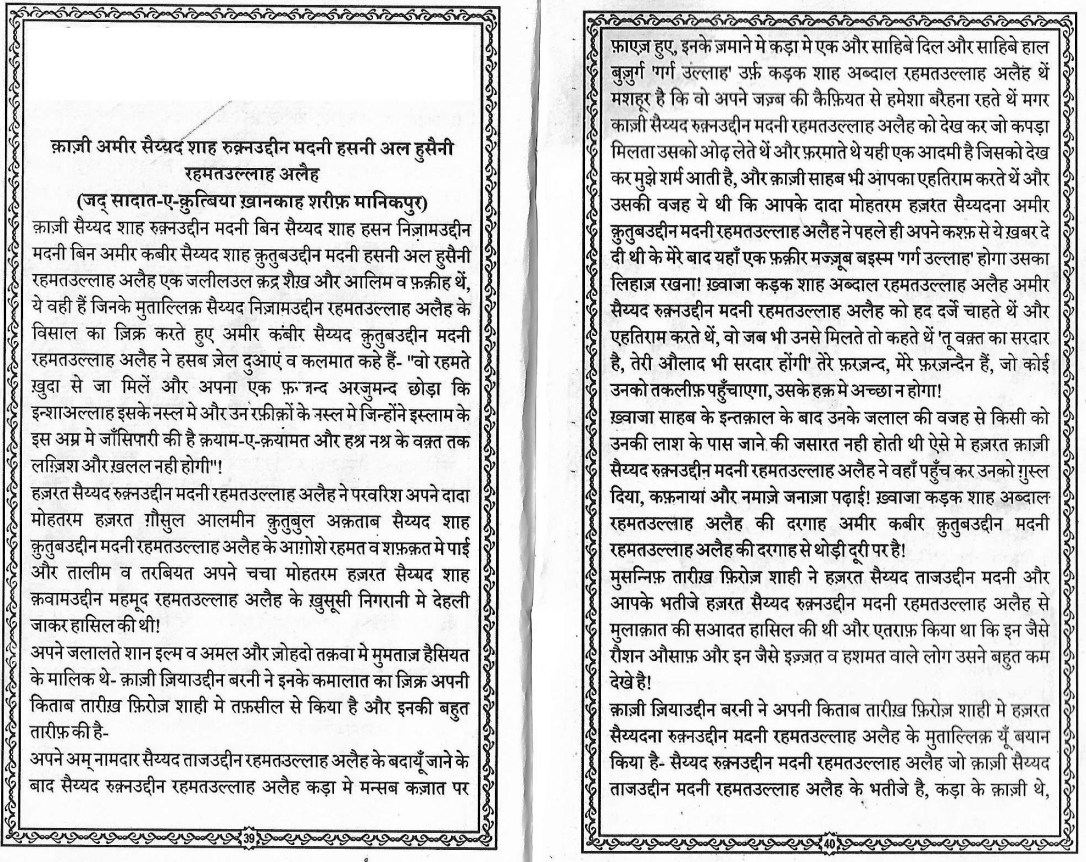 क़ाज़ी अमीर सैय्यद शाह रुक़्नउद्दीन मदनी हसनी अल हुसैनी
रहमतउल्लाह अलैह
(जद् सादात-ए-क़ुत्बिया ख़ानकाह शरीफ़ मानिकपुर)
क़ाज़ी सैय्यद शाह रुक़्नउद्दीन मदनी बिन सैय्यद शाह हसन निज़ामउद्दीन
मदनी बिन अमीर कबीर सैय्यद शाह क़ुतुबउद्दीन मदनी हसनी अल हुसैनी
रहमतउल्लाह अलैह एक जलीलउल क़द्र शैख़ और आलिम व फ़क़ीह थें,
ये वही हैं जिनके मुताल्लिक़ सैय्यद निज़ामउद्दीन रहमतउल्लाह अलैह के
विसाल का ज़िक्र करते हुए अमीर कबीर सैय्यद क़ुतुबउद्दीन मदनी
रहमतउल्लाह अलैह ने हसब ज़ेल दुआएं व कलमात कहे हैं- "वो रहमते
ख़ुदा से जा मिलें और अपना एक अरजुमन्द छोड़ा कि
इन्शाअल्लाह इसके नस्ल मे और उन रफ़ीक़ों के नस्ल मे जिन्होंने इस्लाम के
इस अम्र मे जाँसिपारी की है क़याम-ए-क़यामत और हश्र नश्र के वक़्त तक
लग़्ज़िश और ख़लल नही होगी"!
हज़रत सैय्यद रुक़्नउद्दीन मदनी रहमतउल्लाह अलैह ने परवरिश अपने दादा
मोहतरम हज़रत ग़ौसुल आलमीन क़ुतुबुल अक़ताब सैय्यद शाह
क़ुतुबउद्दीन मदनी रहमतउल्लाह अलैह के आग़ोशे रहमत व शफ़क़त मे पाई
और तालीम व तरबियत अपने चचा मोहतरम हज़रत सैय्यद शाह
क़वामउद्दीन महमूद रहमतउल्लाह अलैह के ख़ुसूसी निगरानी मे देहली
जाकर हासिल की थी!
अपने जलालते शान इल्म व अमल और ज़ोहदो तक़वा मे मुमताज़ हैसियत
के मालिक थे- क़ाज़ी ज़ियाउद्दीन बरनी ने इनके कमालात का ज़िक्र अपनी
किताब तारीख़ फ़िरोज़ शाही मे तफ़सील से किया है और इनकी बहुत
तारीफ़ की है-
अपने अम् नामदार सैय्यद ताजउद्दीन रहमतउल्लाह अलैह के बदायूँ जाने के
बाद सैय्यद रुक़्नउद्दीन रहमतउल्लाह अलैह कड़ा मे मन्सब कज़ात पर
39
फ़ाएज़ हुए, इनके ज़माने मे कड़ा मे एक और साहिबे दिल और साहिबे हाल
बुज़ुर्ग 'गर्ग उल्लाह' उर्फ़ कड़क शाह अब्दाल रहमतउल्लाह अलैह थें
मशहूर है कि वो अपने जज़्ब की कैफ़ियत से हमेशा बरैहना रहते थें मगर
काज़ी सैय्यद रुक़्नउद्दीन मदनी रहमतउल्लाह अलैह को देख कर जो कपड़ा
मिलता उसको ओढ़ लेते थें और फ़रमाते थे यही एक आदमी है जिसको देख
कर मुझे शर्म आती है, और क़ाज़ी साहब भी आपका एहतिराम करते थें और
उसकी वजह ये थी कि आपके दादा मोहतरम हज़रत सैय्यदना अमीर
क़ुतुबउद्दीन मदनी रहमतउल्लाह अलैह ने पहले ही अपने कश्फ़ से ये ख़बर दे
दी थी के मेरे बाद यहाँ एक फ़क़ीर मज्ज़ूब बइस्म 'गर्ग उल्लाह' होगा उसका
लिहाज़ रखना! ख़्वाजा कड़क शाह अब्दाल रहमतउल्लाह अलैह अमीर
सैय्यद रुक़्नउद्दीन मदनी रहमतउल्लाह अलैह को हद दर्जे चाहते थें और
एहतिराम करते थें, वो जब भी उनसे मिलते तो कहते थें 'तू वक़्त का सरदार
है, तेरी औलाद भी सरदार होंगी' तेरे फ़रज़न्द, मेरे फ़रज़न्दैन हैं, जो कोई
उनको तकलीफ़ पहुँचाएगा, उसके हक़ मे अच्छा न होगा!
ख़्वाजा साहब के इन्तक़ाल के बाद उनके जलाल की वजह से किसी को
उनकी लाश के पास जाने की जसारत नही होती थी ऐसे मे हज़रत क़ाज़ी
सैय्यद रुक़्नउद्दीन मदनी रहमतउल्लाह अलैह ने वहाँ पहुँच कर उनको ग़ुस्ल
दिया, कफ़नायां और नमाज़े जनाज़ा पढ़ाई! ख़्वाजा कड़क शाह अब्दाल
रहमतउल्लाह अलैह की दरगाह अमीर कबीर क़ुतुबउद्दीन मदनी
रहमतउल्लाह अलैह की दरगाह से थोड़ी दूरी पर है!
मुसन्निफ़ तारीख़ फ़िरोज़ शाही ने हज़रत सैय्यद ताजउद्दीन मदनी और
आपके भतीजे हज़रत सैय्यद रुक़्नउद्दीन मदनी रहमतउल्लाह अलैह से
मुलाक़ात की सआदत हासिल की थी और एतराफ़ किया था कि इन जैसे
रौशन औसाफ़ और इन जैसे इज़्ज़त व हशमत वाले लोग उसने बहुत कम
देखे है!
क़ाज़ी ज़ियाउद्दीन बरनी ने अपनी किताब तारीख़ फ़िरोज़ शाही मे हज़रत
सैय्यदना रुक़्नउद्दीन मदनी रहमतउल्लाह अलैह के मुताल्लिक़ यूँ बयान
किया है- सैय्यद रुक़्नउद्दीन मदनी रहमतउल्लाह अलैह जो क़ाज़ी सैय्यद
ताजउद्दीन मदनी रहमतउल्लाह अलैह के भतीजे है, कड़ा के क़ाज़ी थे,
40